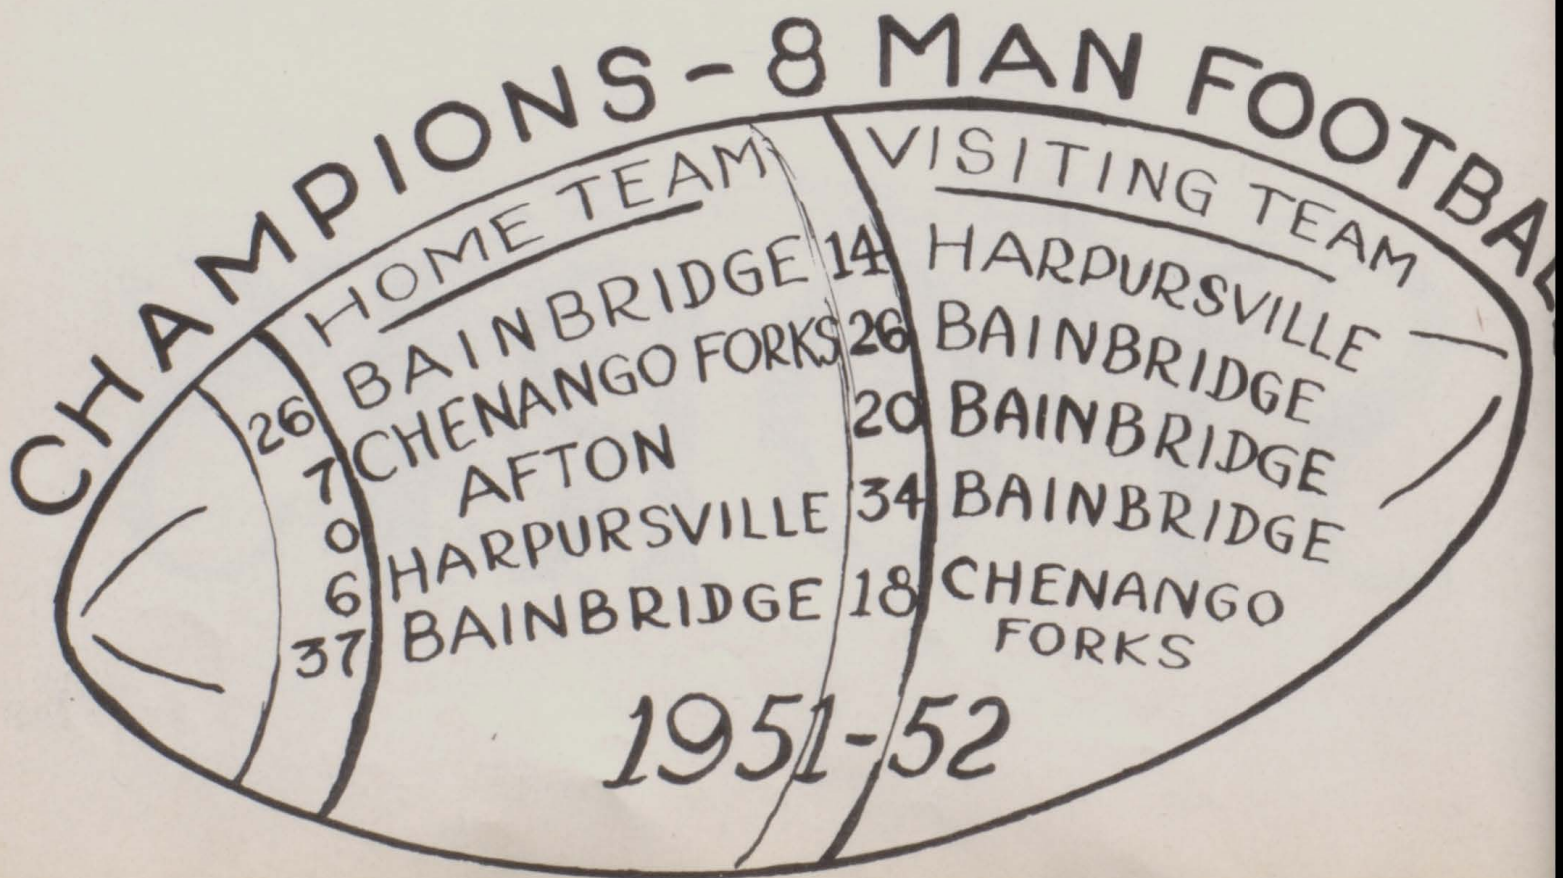 CHAMPIONS - 8 MAN FOOTBAL
HOME TEAM VISITING TEAM
26 BAINBRIDGE 14 HARPURSVILLE
7 CHENANGO FORKS 26 BAINBRIDGE
0 AFTON 20 BAINBRIDGE
6 HARPURSVILLE 34 BAINBRIDGE
37 BAINBRIDGE 18 CHENANGO
FORKS
1951-52